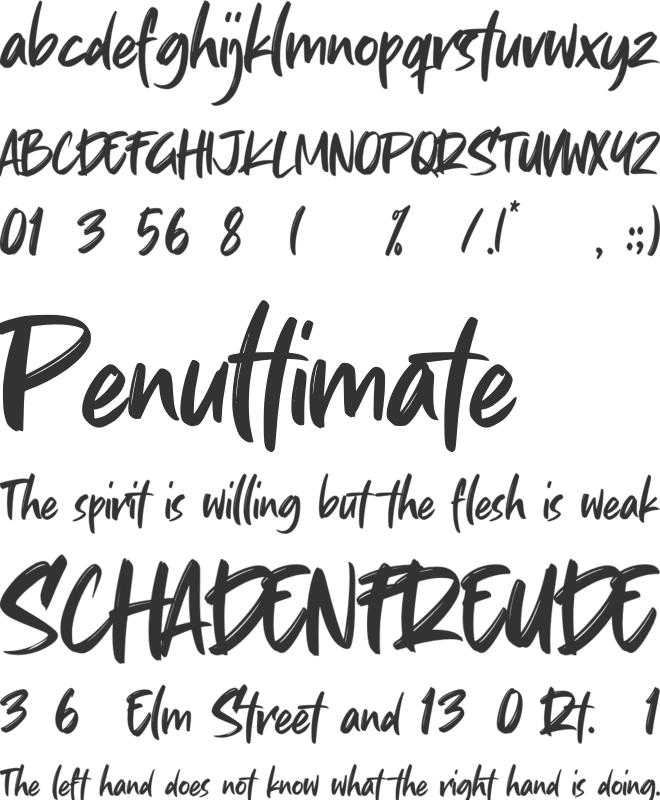 abcdefghijklmnopqrstuvwxyz
ABCDEFGHIJKLMNOPQRSTUVWXYZ
01 3 56 8 ( % / . ! * , : ; )
Penultimate
The spirit is willing but the flesh is weak
SCHADENFREUDE
3 6 Elm Street and 13 0 Rt. 1
The left hand does not know what the right hand is doing.